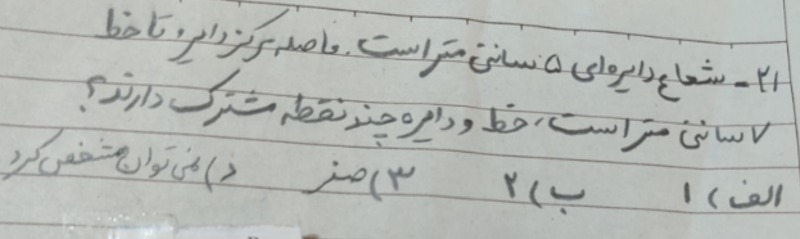 ۲۱- شعاع دایره‌ای ۵ سانتی متر است. فاصله مرکز دایره تا خط
۷ سانتی متر است، خط و دایره چند نقطه مشترک دارند؟
الف) ۱ ب) ۲ ۳) صفر د) نمی توان مشخص کرد